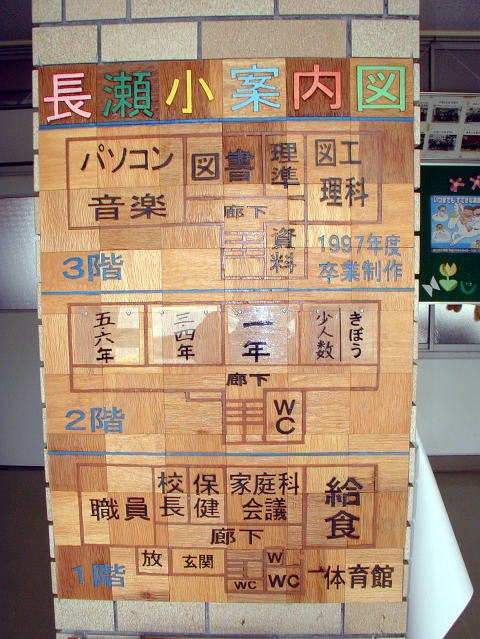 長瀬小案内図
パソコン
音楽
図書
理準
図工
理科
廊下
資料
1997年度
卒業制作
3階
五・六年
三・四年
一年
少人数
きぼう
廊下
2階
WC
職員
校長
保健
家庭科
会議
給食
廊下
放
玄関
WC
W
WC
体育館
1階